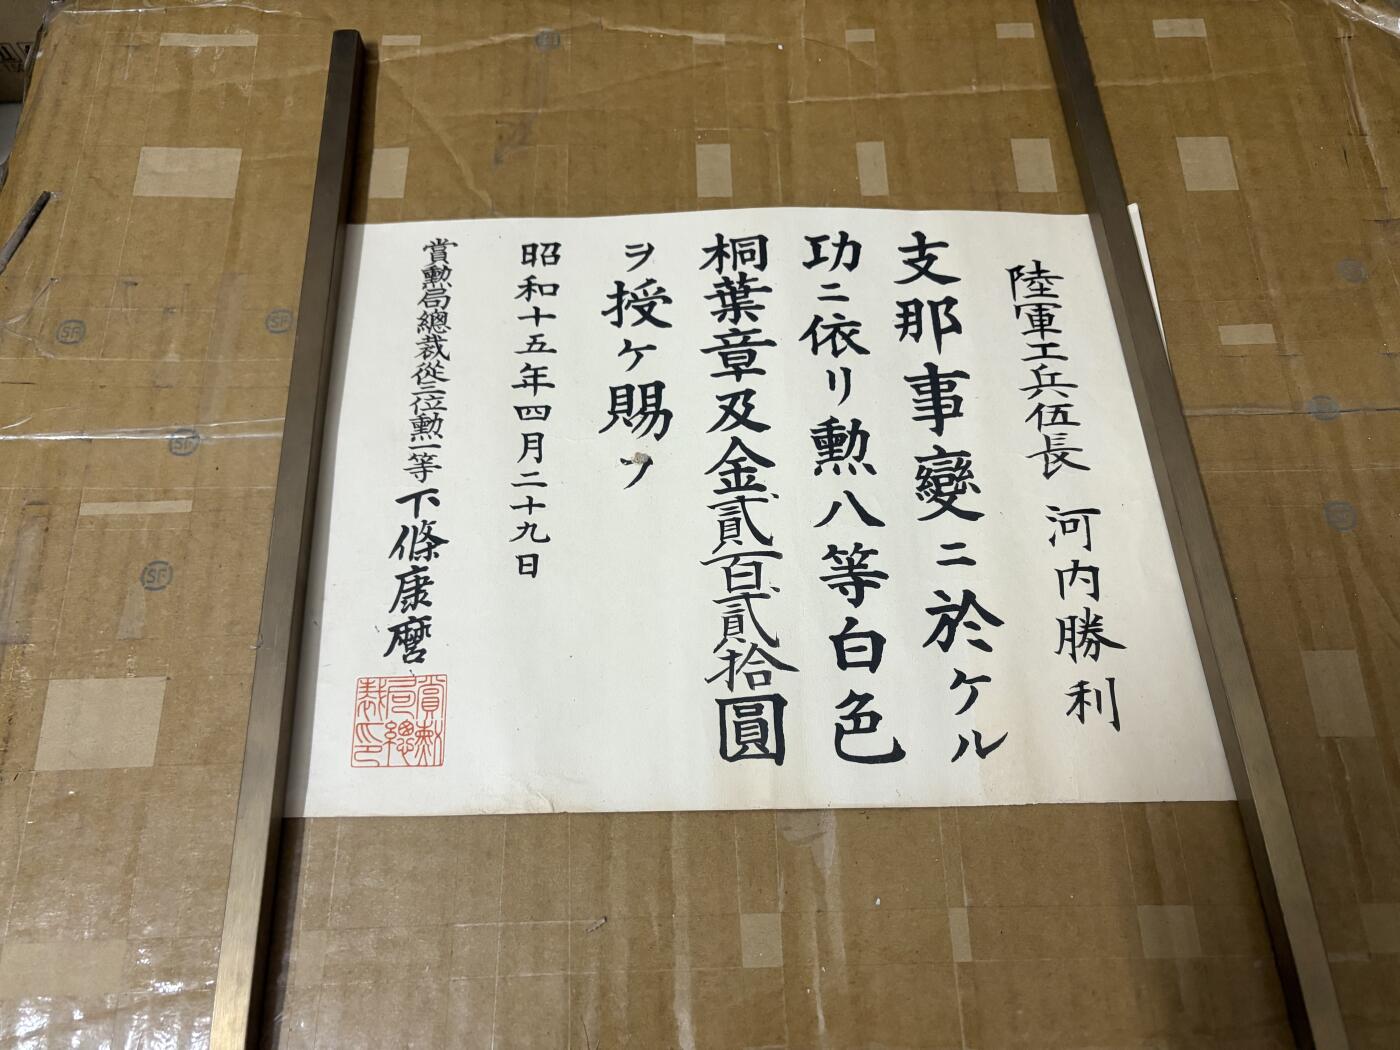 陸軍工兵伍長 河内勝利
支那事變ニ於ケル
功ニ依リ勳八等白色
桐葉章及金貳百貳拾圓
ヲ授ケ賜フ
昭和十五年四月二十九日
賞勳局總裁從三位勳一等下條康麿
賞勳
局總
裁印
SF
SF
SF
SF
SF
SF
SF
SF